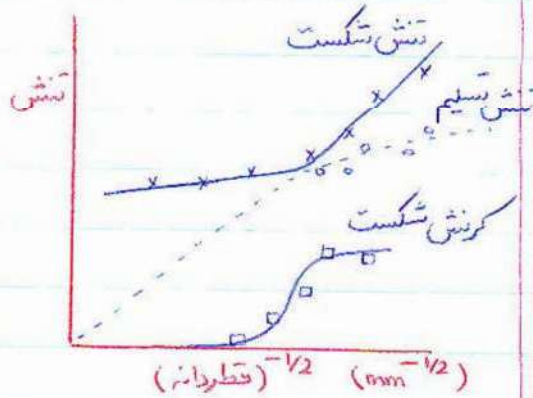 تنش شکست
تنش
تنش تسلیم
کرنش شکست
(قطر دانه)^-1/2 (mm^-1/2)